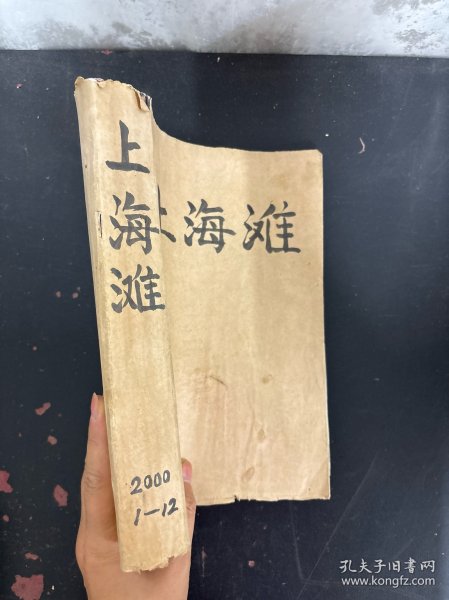 上海滩
上海滩
2000
1—12
孔夫子旧书网
www.kongfz.com